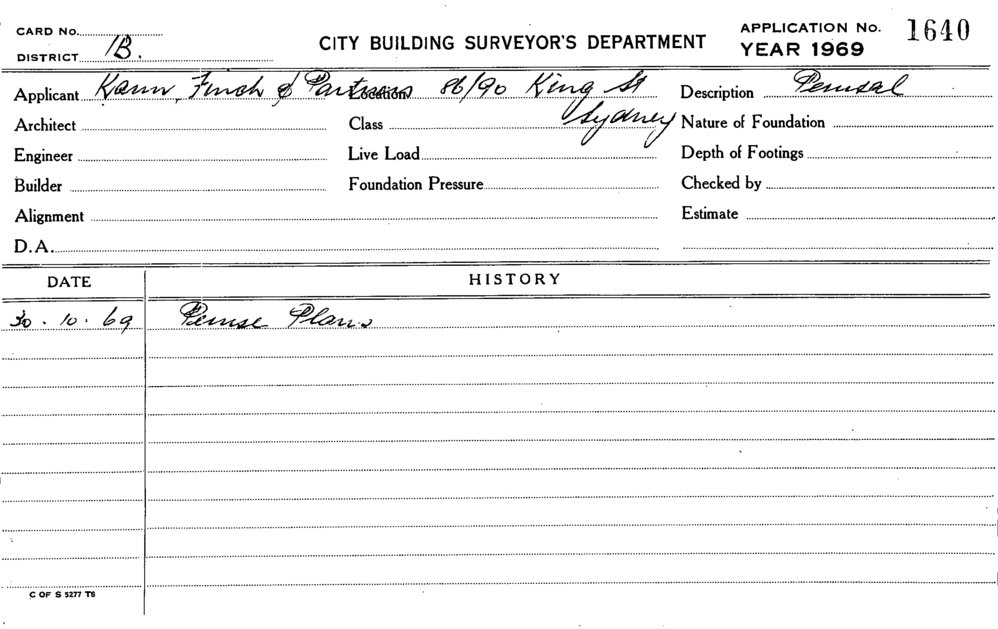 CARD No.
DISTRICT 1B.
CITY BUILDING SURVEYOR'S DEPARTMENT
APPLICATION No. 1640
YEAR 1969
Applicant Kann, Finch & Partners Location 86/90 King St Sydney Description Perusal
Architect Class Nature of Foundation
Engineer Live Load Depth of Footings
Builder Foundation Pressure Checked by
Alignment Estimate
D.A.
DATE HISTORY
30.10.69 Peruse Plans
C OF S 5277 T6